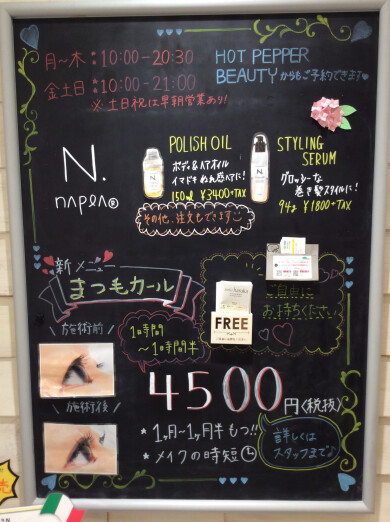 月〜木：10:00-20:30
金土日：10:00-21:00
※土日祝は早朝営業あり!
HOT PEPPER
BEAUTYからもご予約できます
N.
napla®
POLISH OIL
ボディ&ヘアオイル
イマドキぬれ感ヘアに!
150ml ¥3400+TAX
STYLING
SERUM
グロッシーな
巻き髪スタイルに!
94g ¥1800+TAX
その他、注文もできます
新メニュー
まつ毛カール
ご自由に
お持ちください
FREE
施術前
1時間
〜1時間半
4500円(税抜)
施術後
*1ヶ月〜1ヶ月半もつ!!
*メイクの時短
詳しくは
スタッフまで♪